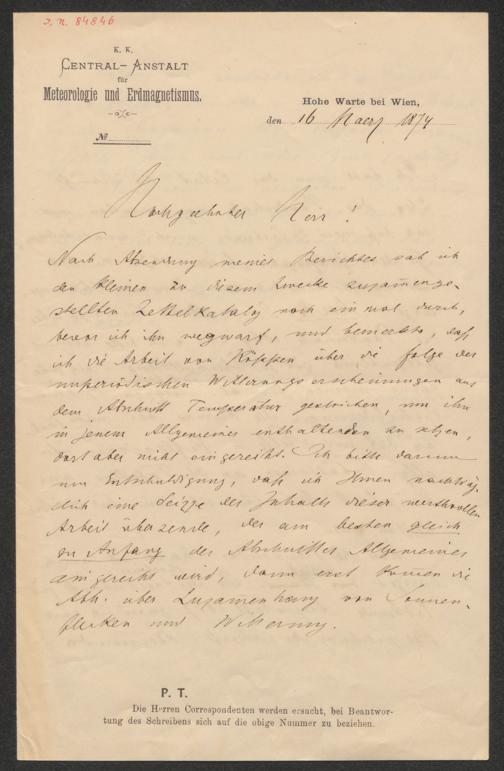 J. N. 84846
K. K.
CENTRAL-ANSTALT
für
Meteorologie und Erdmagnetismus.
№
Hohe Warte bei Wien,
den 16 Maerz 1874
Hochgeehrter Herr!
Nach Absendung meines Berichtes sah ich
den kleinen zu diesem Zwecke zusam̅enge-
stellten Zettelkatalog noch ein mal durch,
bevor ich ihn wegwarf, und bemerkte, daß
ich die Arbeit von Köppen über die Folge der
unperiodischen Witterungserscheinungen aus
dem Abschnitt Temperatur gestrichen, um ihn
in jenem Allgemeines enthaltenden zu setzen,
dort aber nicht eingereiht. Ich bitte darum
um Entschuldigung, daß ich Ihnen nachträg-
lich eine Skizze des Inhalts dieser werthvollen
Arbeit übersende, der am besten gleich
zu Anfang des Abschnittes Allgemeines
eingereiht wird, dann erst kom̅en die
Abh. über Zusam̅enhang von Sonnen-
flecken und Witterung.
P. T.
Die Herren Correspondenten werden ersucht, bei Beantwor-
tung des Schreibens sich auf die obige Nummer zu beziehen.